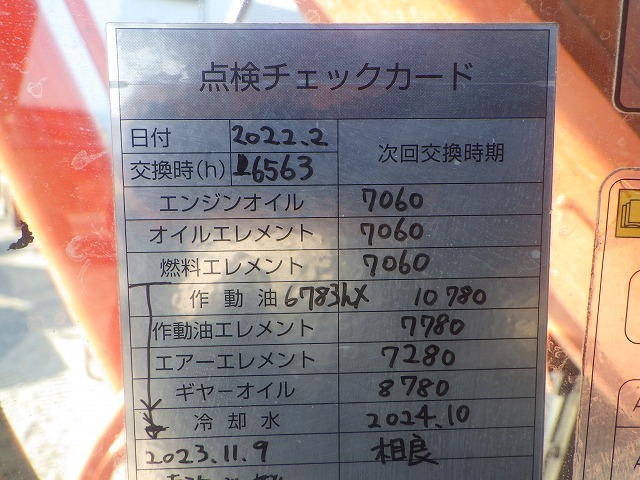 点検チェックカード
日付 2022.2
交換時(h) 6563 次回交換時期
エンジンオイル 7060
オイルエレメント 7060
燃料エレメント 7060
作動油 6783h 10780
作動油エレメント 7780
エアーエレメント 7280
ギヤーオイル 8780
冷却水 2024.10
2023.11.9 相良